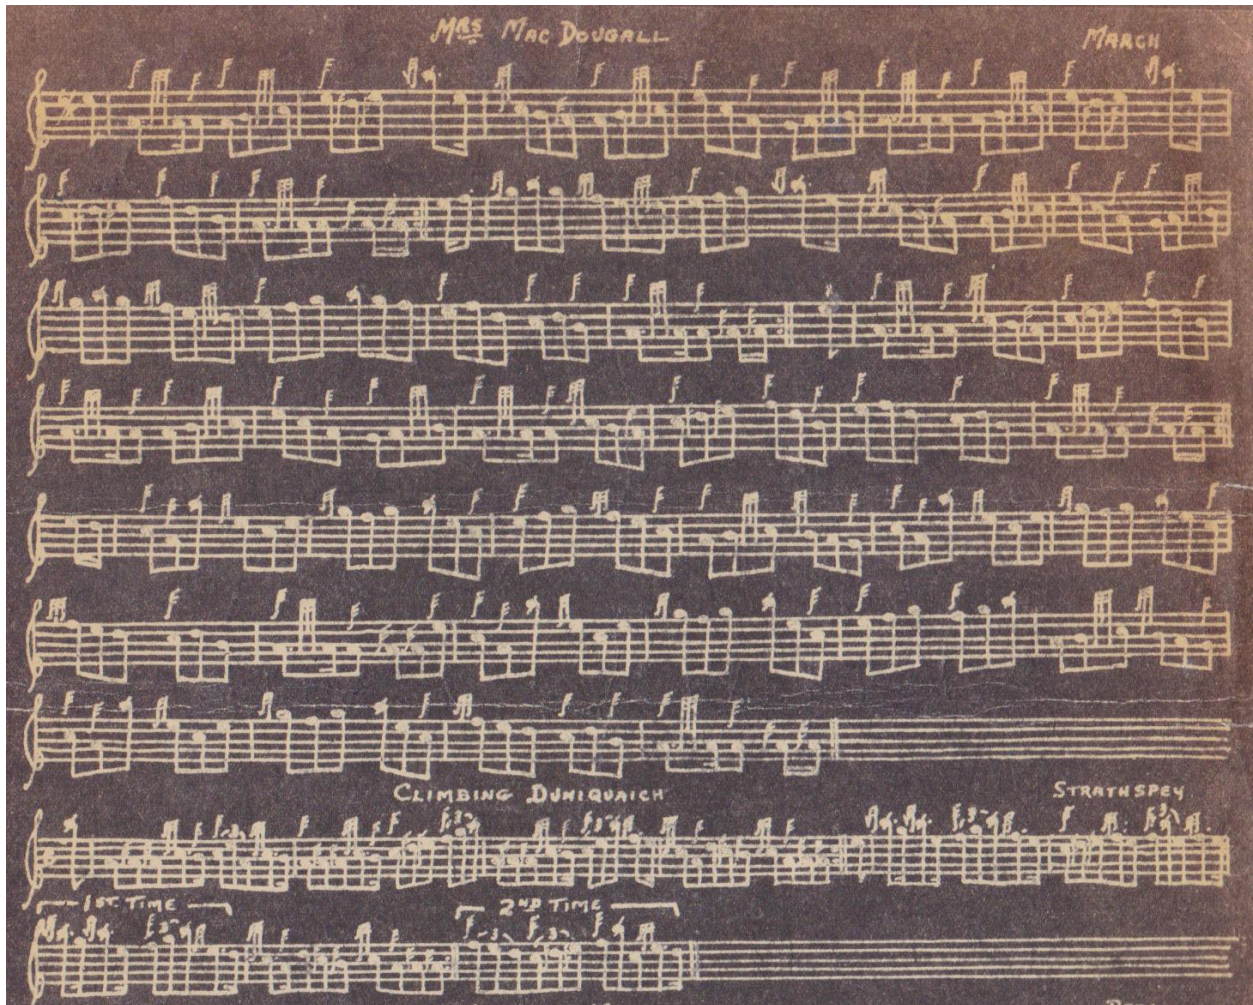 MRS MAC DOUGALL MARCH
CLIMBING DUNIQUAICH STRATHSPEY
1ST TIME 2ND TIME